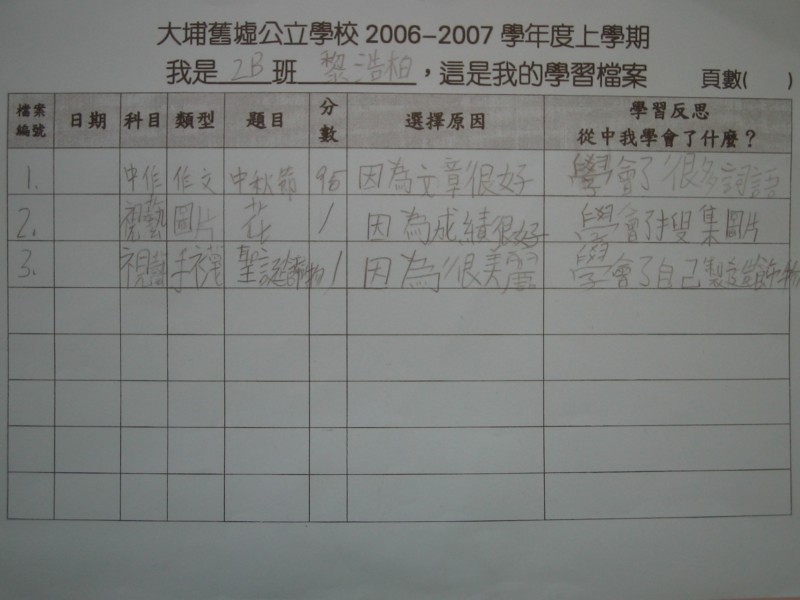 大埔舊墟公立學校 2006-2007 學年度上學期
我是 2B 班 黎浩柏 ，這是我的學習檔案 頁數( )
檔案編號 日期 科目 類型 題目 分數 選擇原因 學習反思 從中我學會了什麼？
1. 中作 作文 中秋節 95 因為文章很好 學會了很多詞語
2. 視藝 圖片 花 / 因為成績很好 學會了搜集圖片
3. 視藝 聖誕飾物 / 因為很美麗 學會了自己製造飾物